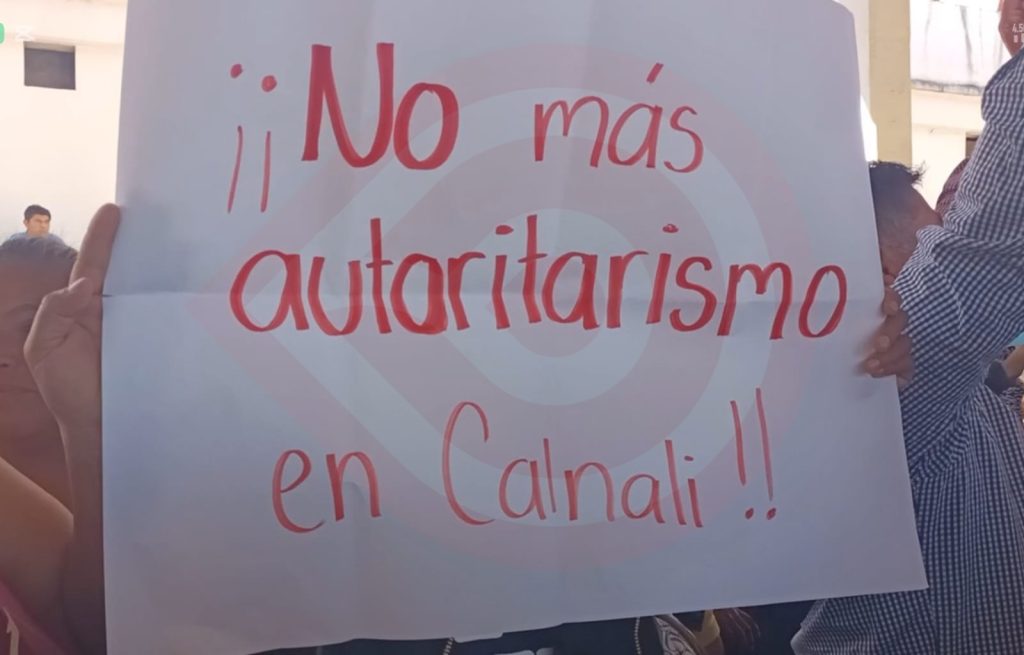 ¡¡No más
autoritarismo
en Calnali!!